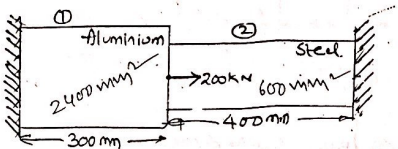 ① ②
Aluminium
Steel
2400mm²
→200KN
600mm²
300mm
400mm